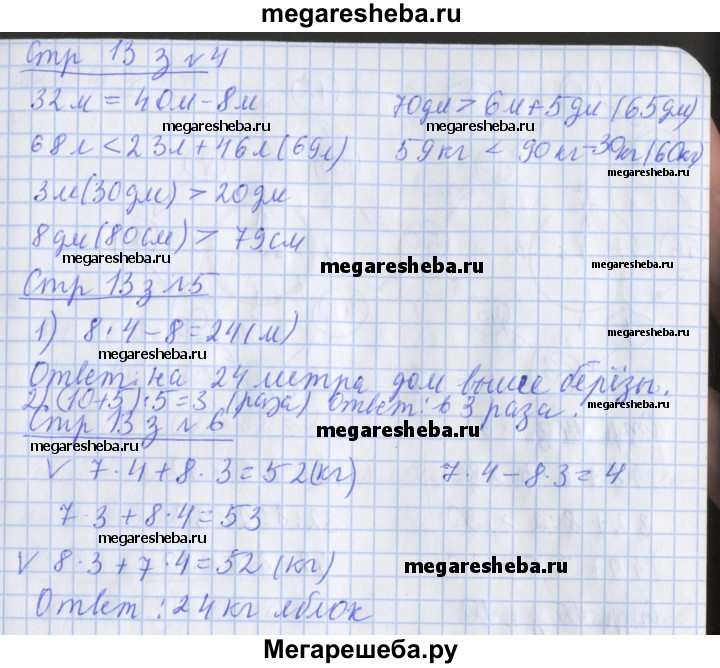 megaresheba.ru
Стр 13 з №4
32м = 40м - 8м 70дм > 6м + 5дм (65дм)
megaresheba.ru megaresheba.ru
68л < 23л + 46л (69л) 59кг < 90кг - 30кг (60кг)
megaresheba.ru
3м (30дм) > 20дм
megaresheba.ru
8дм (80см) > 79см
megaresheba.ru megaresheba.ru
Стр 13 з №5
1) 8 · 4 - 8 = 24 (м)
megaresheba.ru megaresheba.ru
Ответ: на 24 метра дом выше берёзы.
2) (10+5) : 5 = 3 (раза) Ответ: в 3 раза.
Стр 13 з №6
megaresheba.ru megaresheba.ru
√ 7 · 4 + 8 · 3 = 52 (кг) 7 · 4 - 8 · 3 = 4
7 · 3 + 8 · 4 = 53
megaresheba.ru
√ 8 · 3 + 7 · 4 = 52 (кг) megaresheba.ru
Ответ: 24 кг яблок
megaresheba.ru
Мегарешеба.ру